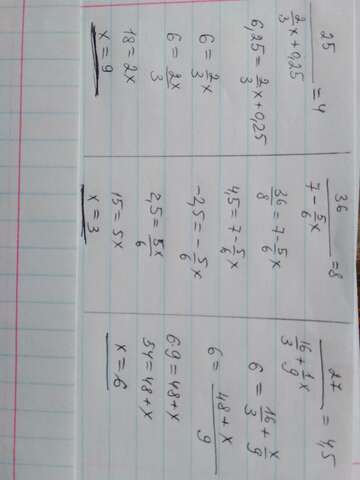 25 / (2/3 x + 0,25) = 4
6,25 = 2/3 x + 0,25
6 = 2/3 x
6 = 2x/3
18 = 2x
x = 9
36 / (7 - 5/6 x) = 8
36/8 = 7 - 5/6 x
4,5 = 7 - 5/6 x
-2,5 = - 5/6 x
2,5 = 5x/6
15 = 5x
x = 3
27 / (16/3 + 1/9 x) = 4,5
6 = 16/3 + x/9
6 = (48 + x)/9
6·9 = 48 + x
54 = 48 + x
x = 6